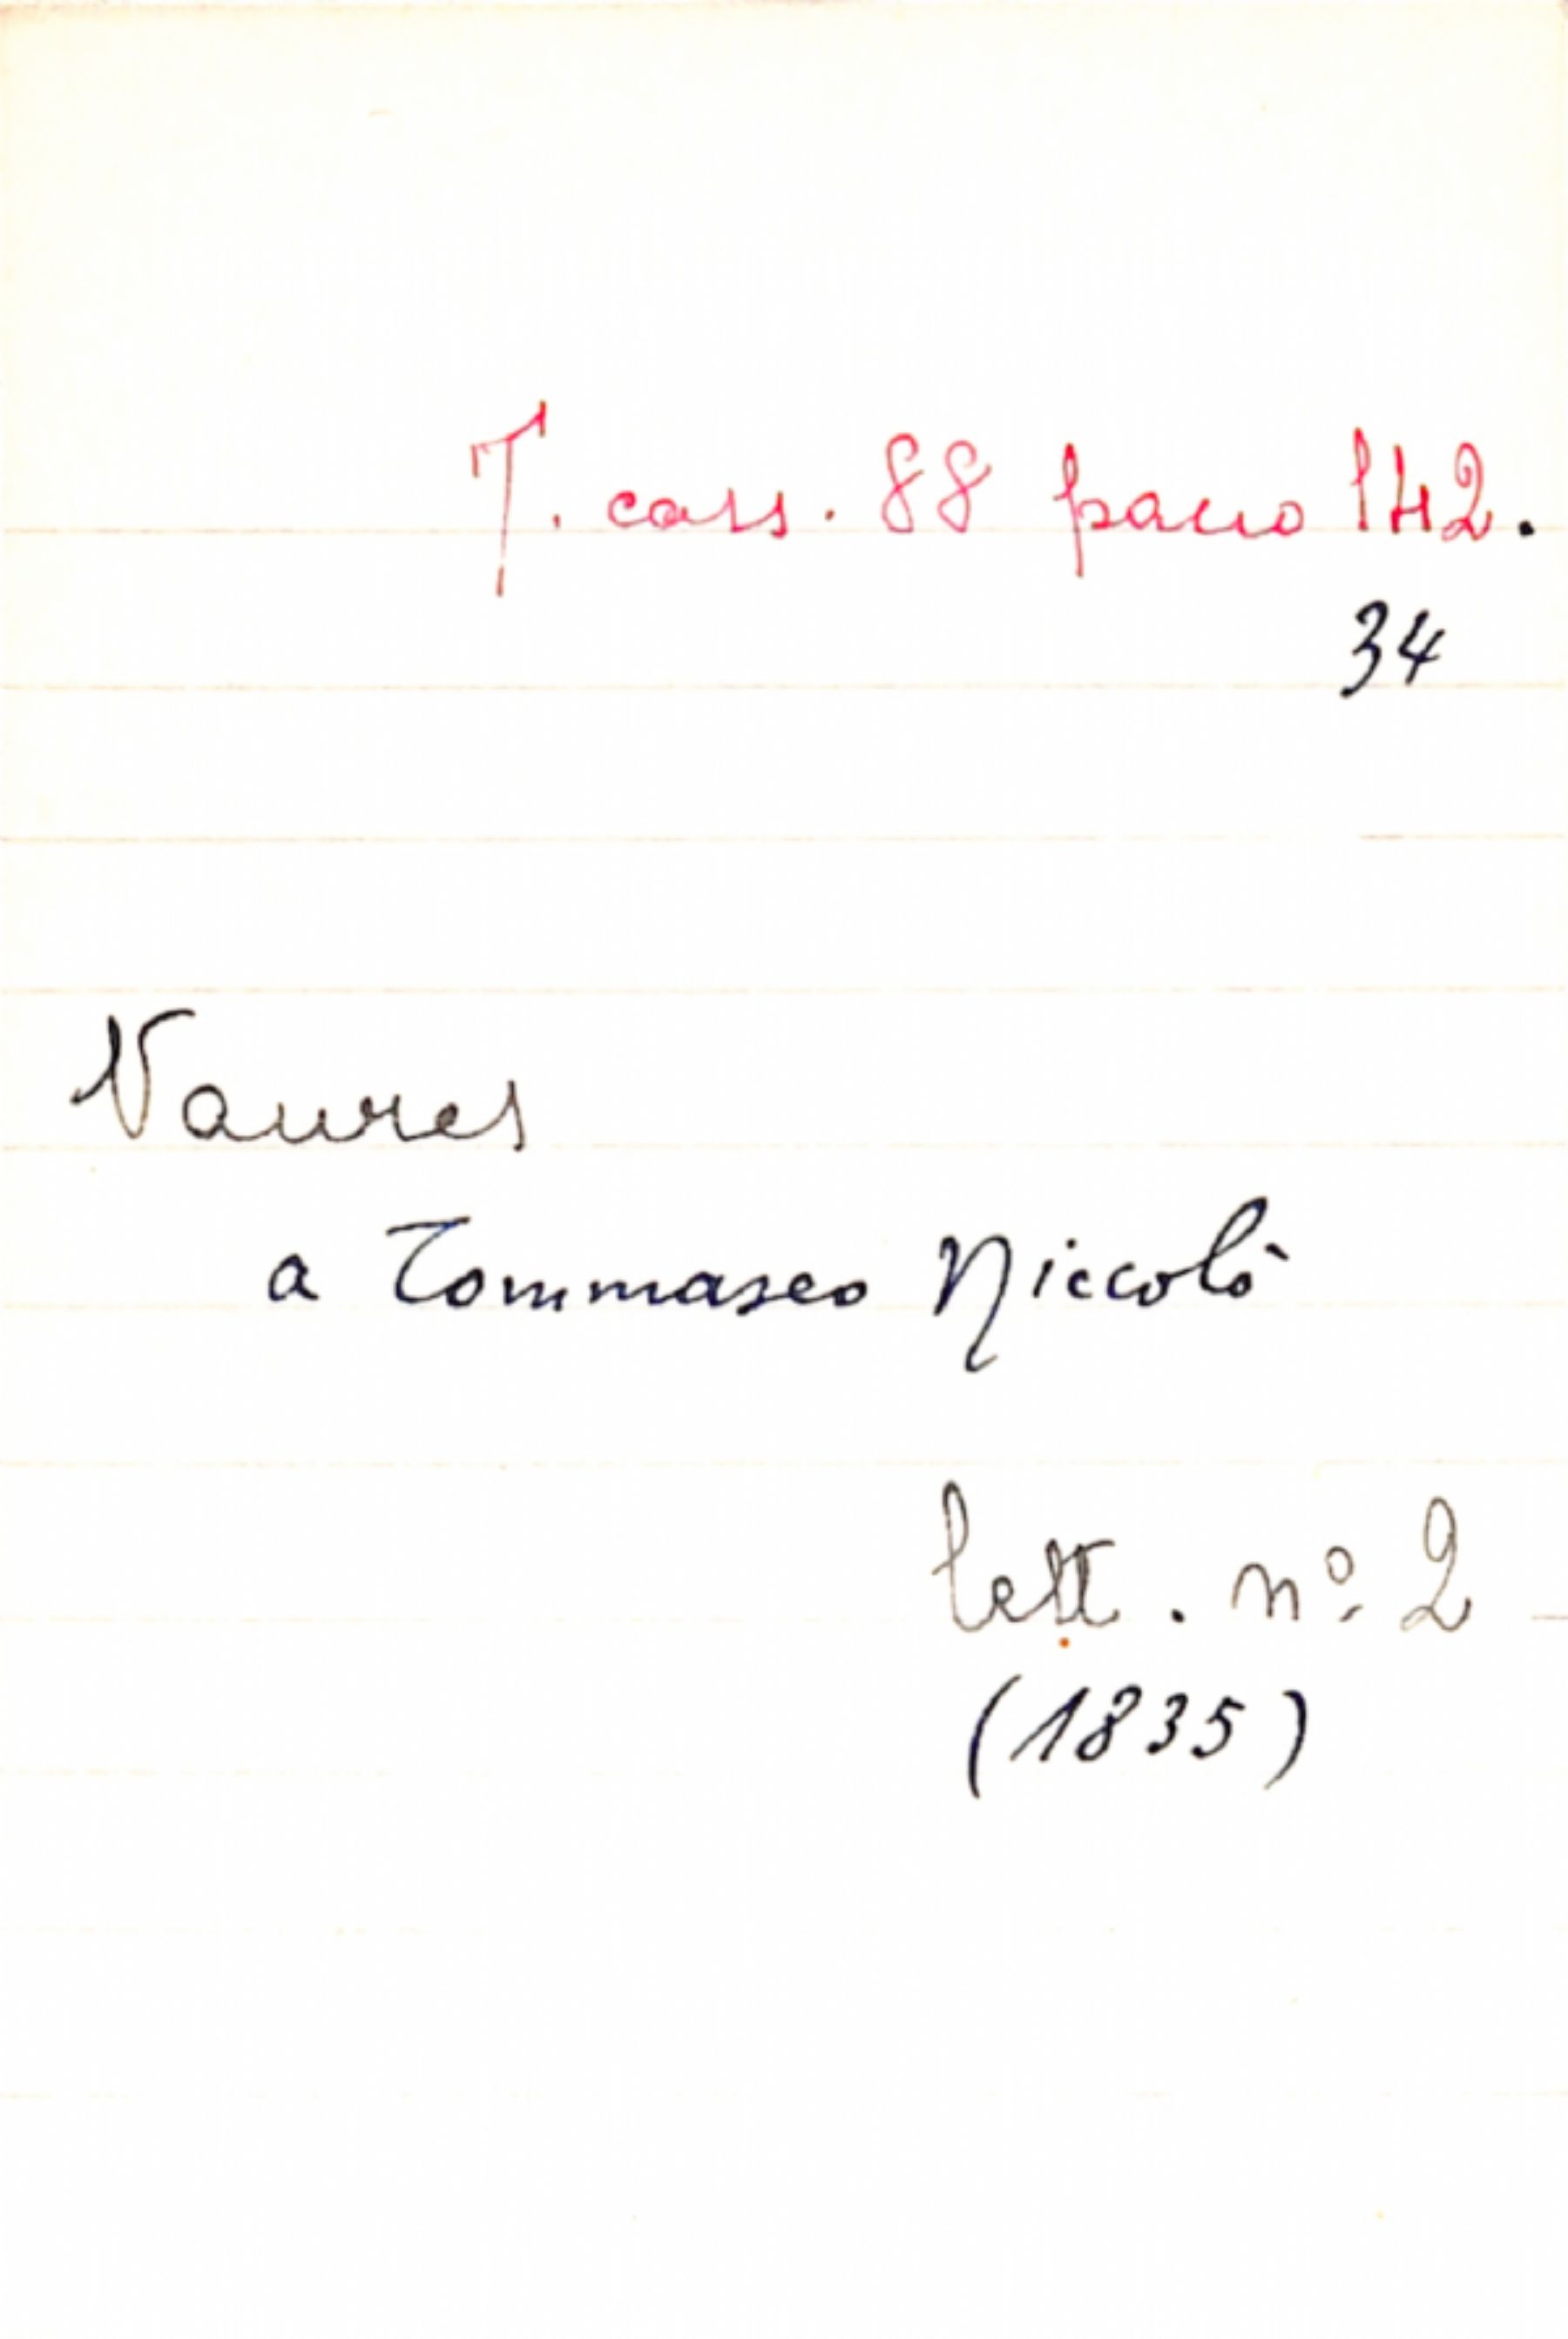 T. cass. 88 pacco 142.
34
Vaures
a Tommaseo Niccolò
lett. nº 2
(1835)